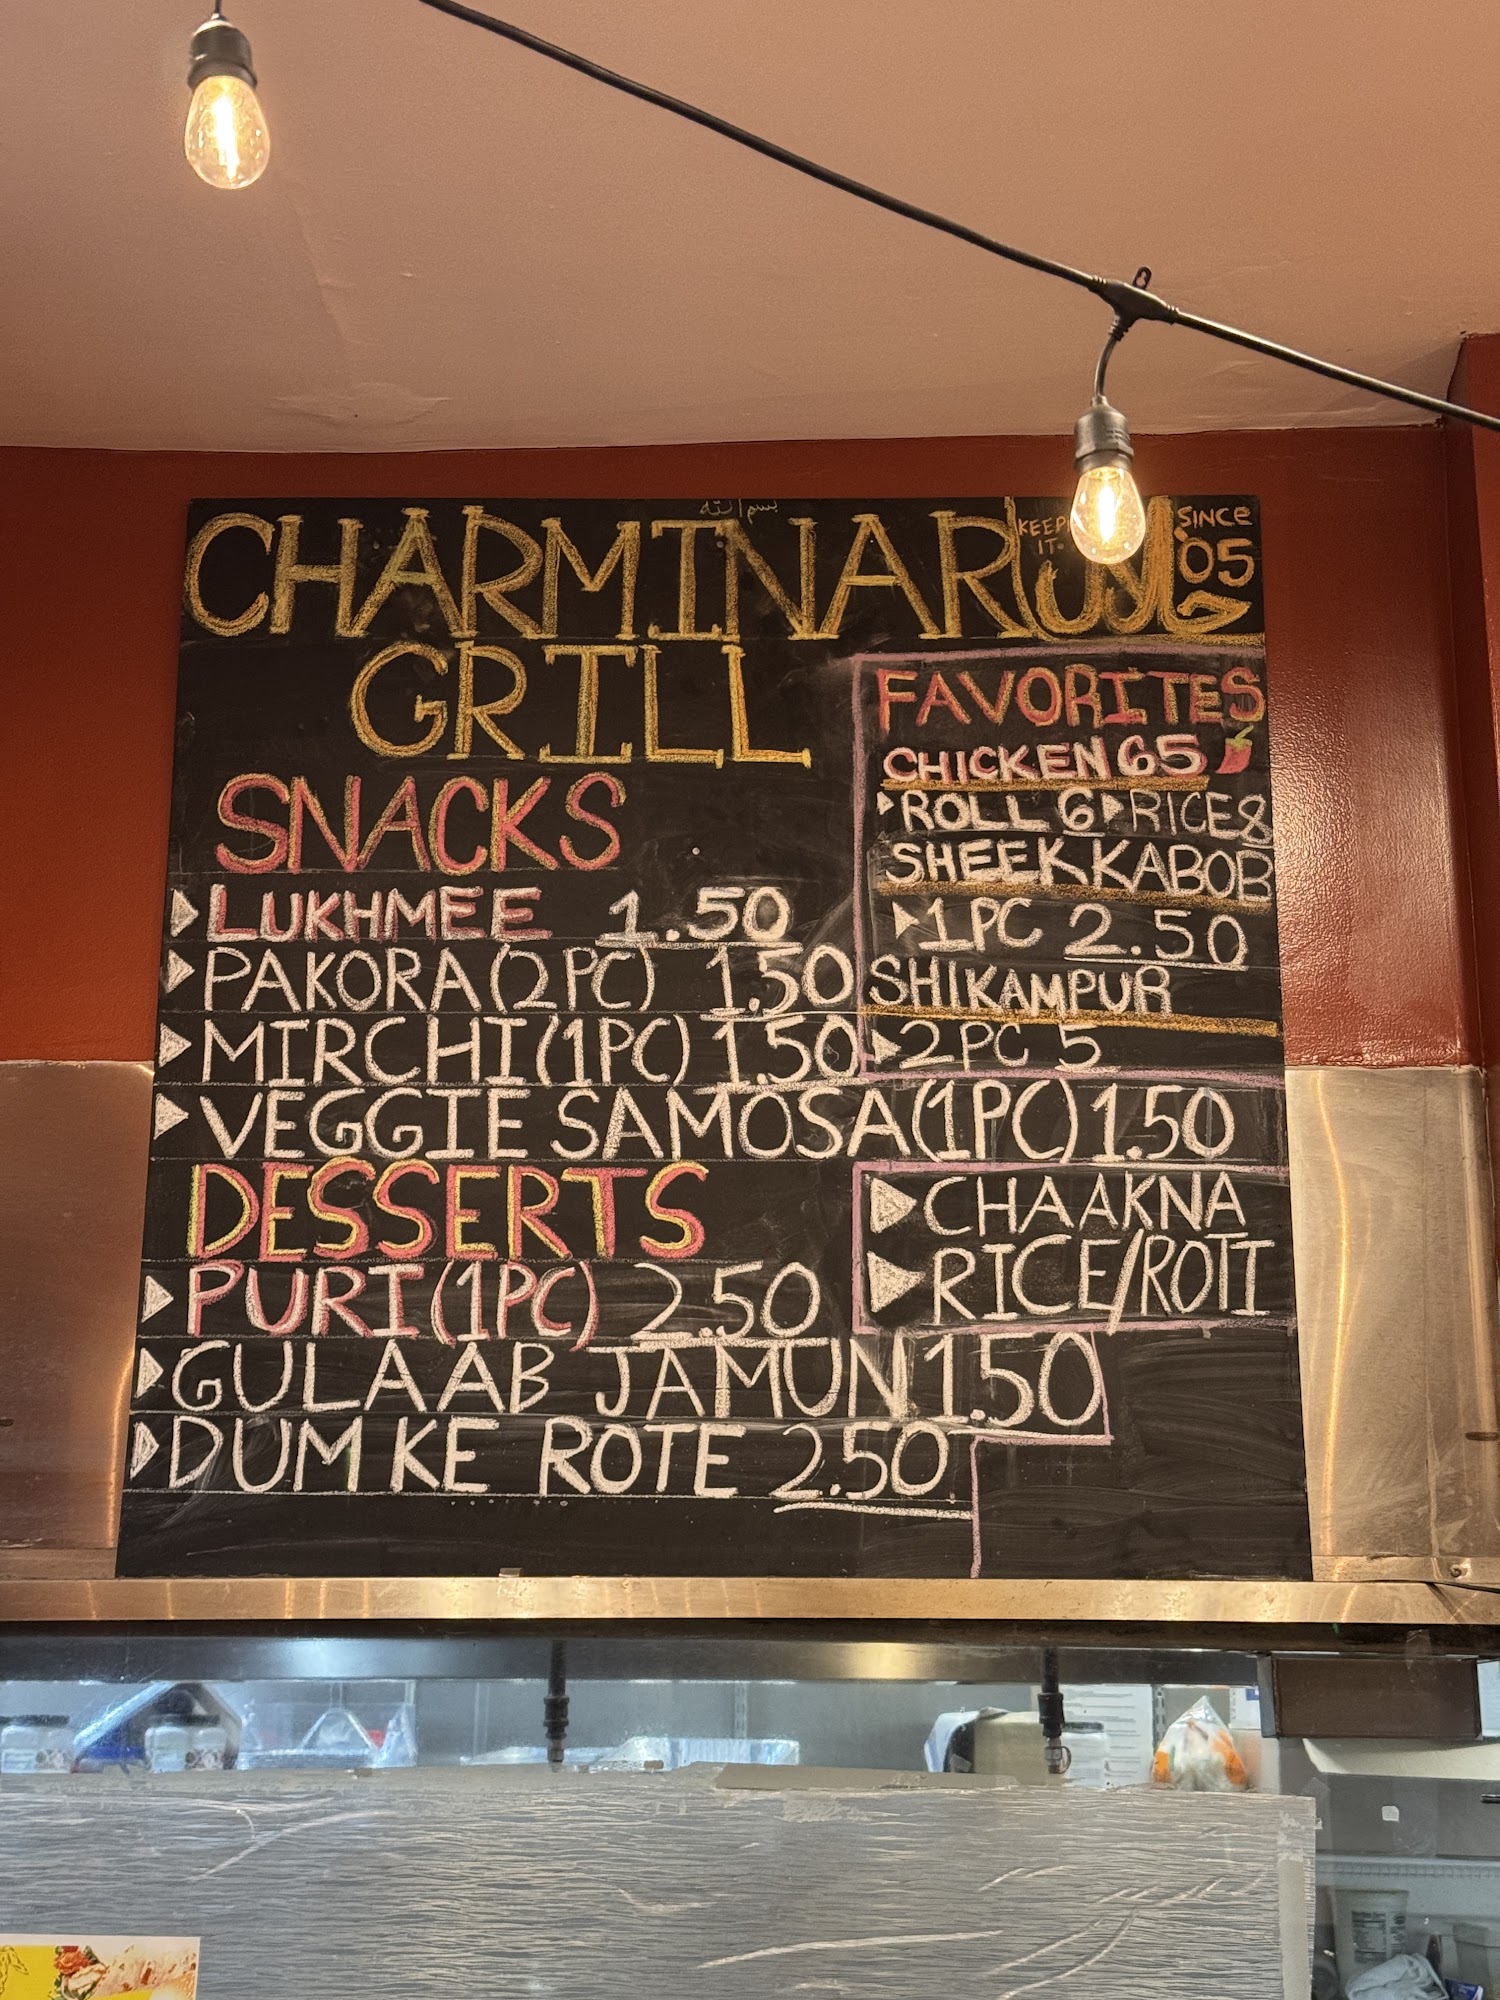 بسم الله
CHARMINAR
KEEP
IT
SINCE
'05
GRILL
SNACKS
LUKHMEE 1.50
PAKORA (2PC) 1.50
MIRCHI (1PC) 1.50
VEGGIE SAMOSA (1PC) 1.50
DESSERTS
PURI (1PC) 2.50
GULAAB JAMUN 1.50
DUM KE ROTE 2.50
FAVORITES
CHICKEN 65
ROLL 6 RICE 8
SHEEK KABOB
1PC 2.50
SHIKAMPUR
2PC 5
CHAAKNA
RICE/ROTI